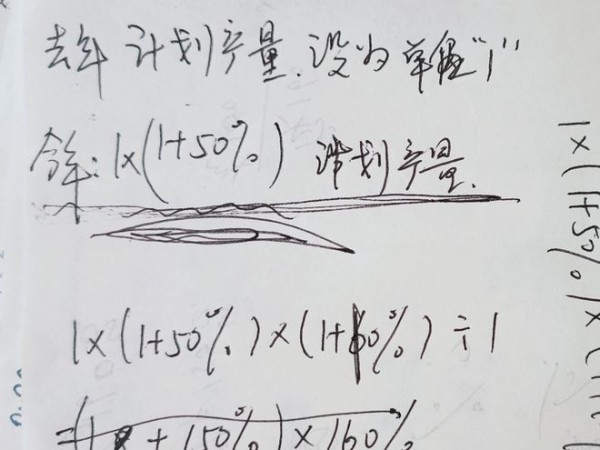 去年计划产量.设为单位"1"
今年:1×(1+50%) 计划产量.
1×(1+50%)×(1+60%)÷1
=(1 + 150%)×160%
1×(1+50%)×(1